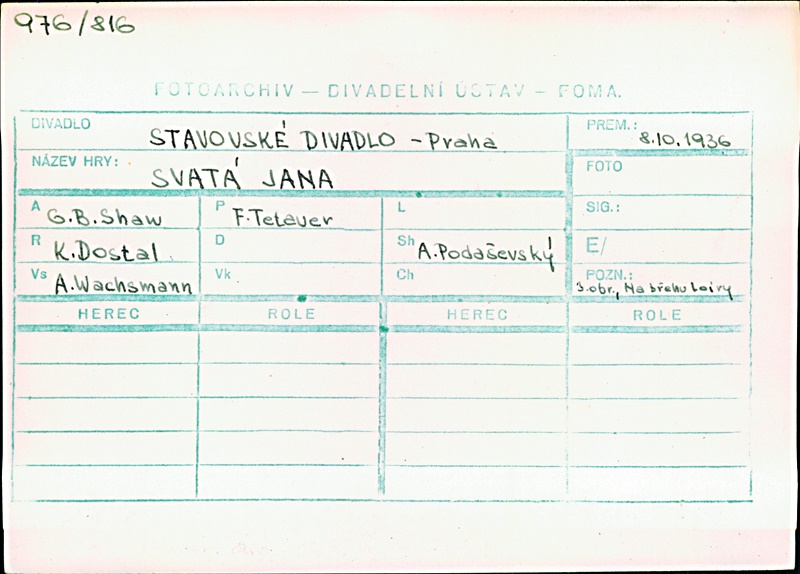 976/816
FOTOARCHIV — DIVADELNÍ ÚSTAV — FOMA.
DIVADLO STAVOVSKÉ DIVADLO - Praha PREM.: 8.10.1936
NÁZEV HRY: SVATÁ JANA FOTO
A G.B.Shaw P F.Tetauer L SIG.:
R K.Dostal D Sh A.Podaševský E/
Vs A.Wachsmann Vk Ch POZN.: 3.obr., Na břehu Loiry
HEREC ROLE HEREC ROLE